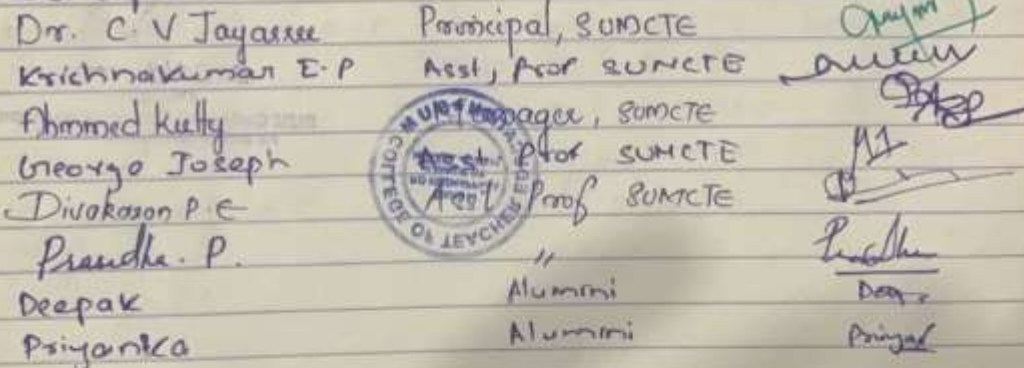 Dr. C. V Jayasree Principal, SUMCTE
Krichnakumar E.P Asst, Prof SUMCTE
Ahmmed Kutty Manager, SUMCTE
George Joseph Asst Prof SUMCTE
Divakaran P.E Asst Prof SUMCTE
Prandha. P. "
Deepak Alumini
Priyanka Alumini
COLLEGE OF TEACHER